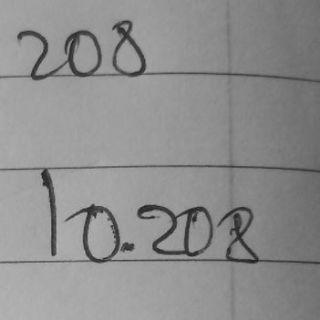 208
10.208